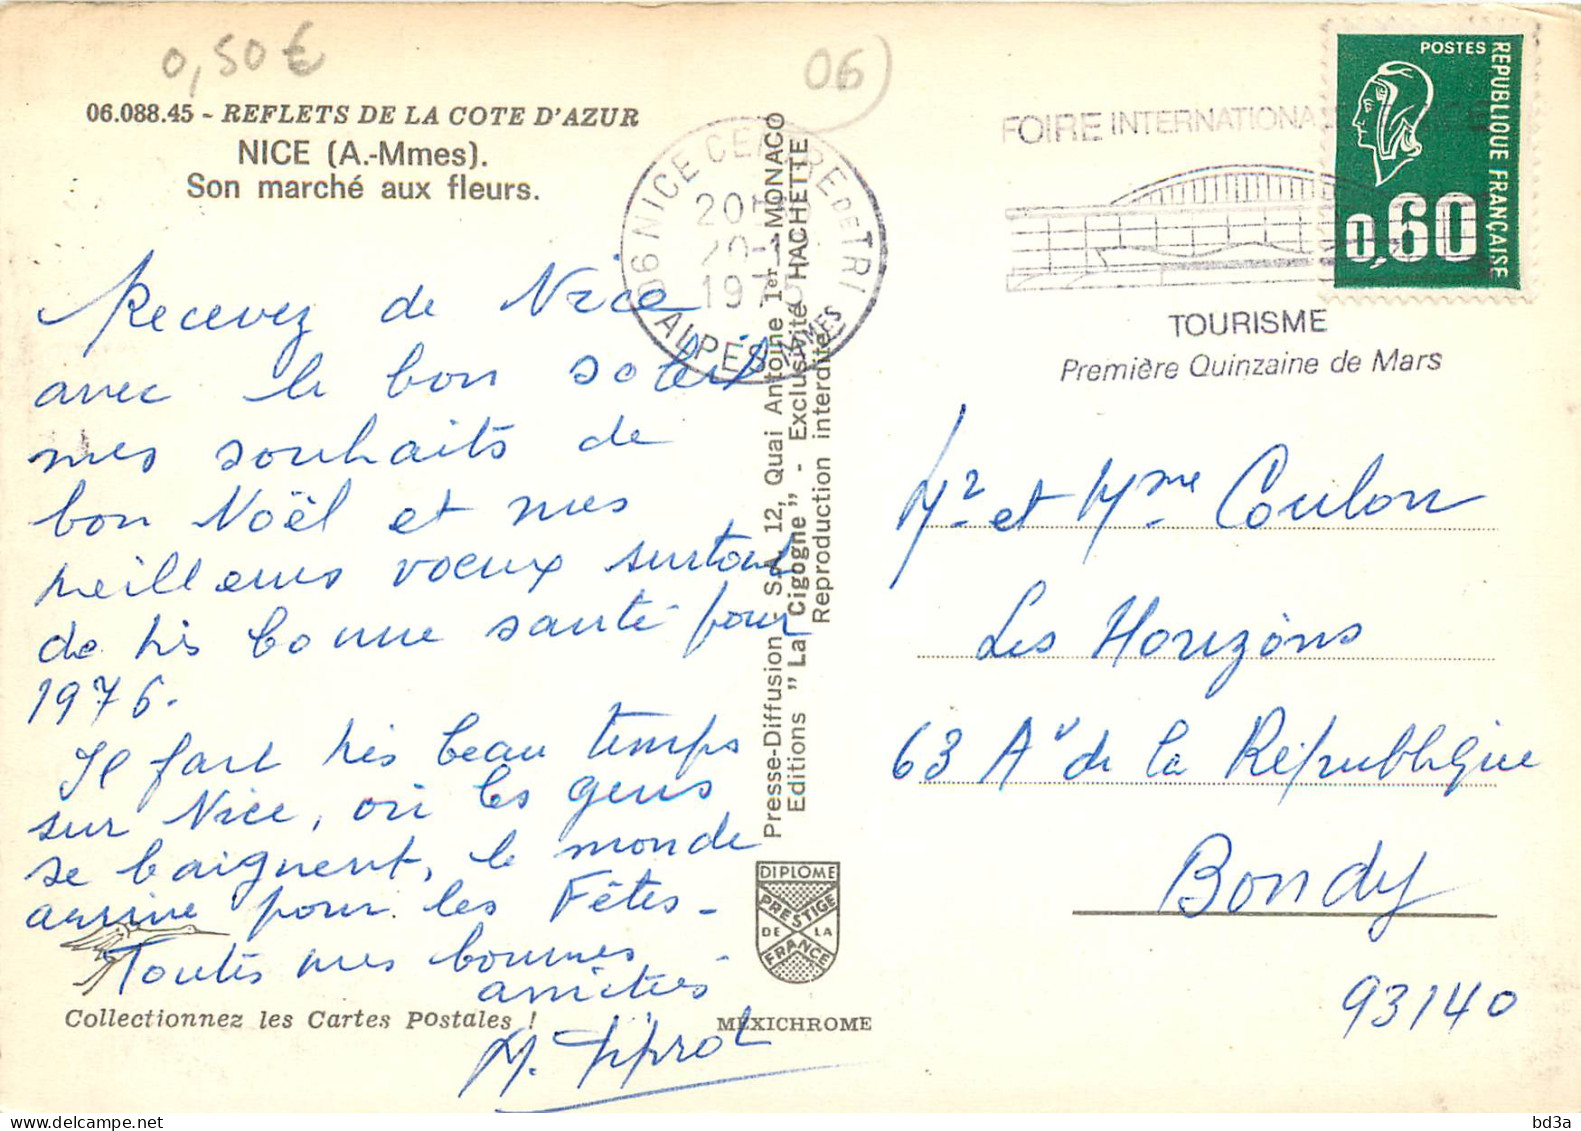 0,50€
06)
06.088.45 - REFLETS DE LA COTE D'AZUR
NICE (A.-Mmes).
Son marché aux fleurs.
06 NICE CENTRE DE TRI
20H
20-1
197
ALPES MMES
FOIRE INTERNATIONA
TOURISME
Première Quinzaine de Mars
POSTES
REPUBLIQUE FRANÇAISE
0,60
Recevez de Nice
avec le bon soleil
mes souhaits de
bon Noël et mes
meilleurs voeux surtout
de très bonne santé pour
1976.
Il fait très beau temps
sur Nice, où les gens
se baignent, le monde
arrive pour les Fêtes -
Toutes mes bonnes
amitiés
M.
Presse-Diffusion - S.A. 12, Quai Antoine 1er MONACO
Editions "La Cigogne" - Exclusivité HACHETTE
Reproduction interdite
DIPLOME
PRESTIGE
DE LA
FRANCE
Mr et Mme Coulon
Les Horizons
63 Av de la République
Bondy
93140
Collectionnez les Cartes Postales !
MEXICHROME
bd3a